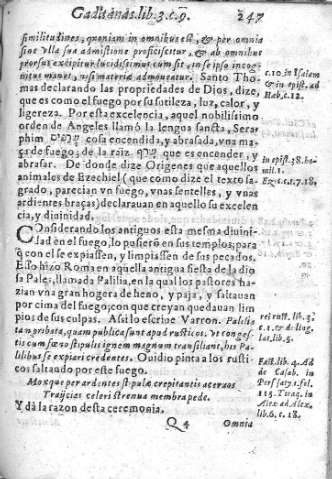 Gaditanas.lib.3.c.9. 247
similitudines, quoniam in omnibus est, & per omnia
sine vlla sua admistione proficiscitur, & ab omnibus
prorsus excipitur lucidissimus cum sit, in se ipso incog-
nitus manet, nisi materia admoueatur. Santo Tho-
mas declarando las propriedades de Dios, dize,
que es como el fuego por su sutileza, luz, calor, y
ligereza. Por esta excelencia, aquel nobilissimo
orden de Angeles llamò la lengua sancta, Sera-
phim שרפים cosa encendida, y abrasada, vna ma-
ça de fuego; de la raiz. שרף que es encender, y
abrasar. De donde dize Origenes que aquellos
animales de Ezechiel (que como dize el texto sa-
grado, parecian vn fuego, vnas sentellas, y vnas
ardientes braças) declarauan en aquello su excelen-
cia, y diuinidad.
Considerando los antiguos esta mesma diuini-
dad en el fuego, lo pusierō en sus templos; para
q̄ con el se expiassen, y limpiassen de sus pecados.
Esso hizo Roma en aquella antigua fiesta de la dio
sa Pales, llamada Palilia, en la qual los pastores ha-
zian vna gran hogera de heno, y paja, y saltauan
por cima del fuego; con que creyan quedauan lim
pios de sus culpas. Asi lo escriue Varron. Palilia
tam probata, quam publica sunt apud rusticos. vt conges-
tis cum fœno stipulis ignem magnum transiliant, his Pa-
lilibus se expiari credentes. Ouidio pinta a los rusti
cos saltando por este fuego.
Moxque per ardentes stipulæ crepitantis aceruos
Traijcias celeri strenua membra pede.
Y dà la razon desta ceremonia.
Q 4 Omnia
c.10. in Isaiem
& in epist. ad
Hab. c.12.
in epist.
Ez. c.1. v.7. 18.
rei rust. lib.
c.1. & de ling.
lat. lib.5.
Fast. lib. 4. Ad
de Casab. in
Pers. sat. 1. fol.
115. Tiraq. in
Alex ad Alex.
lib.6. c. 18.